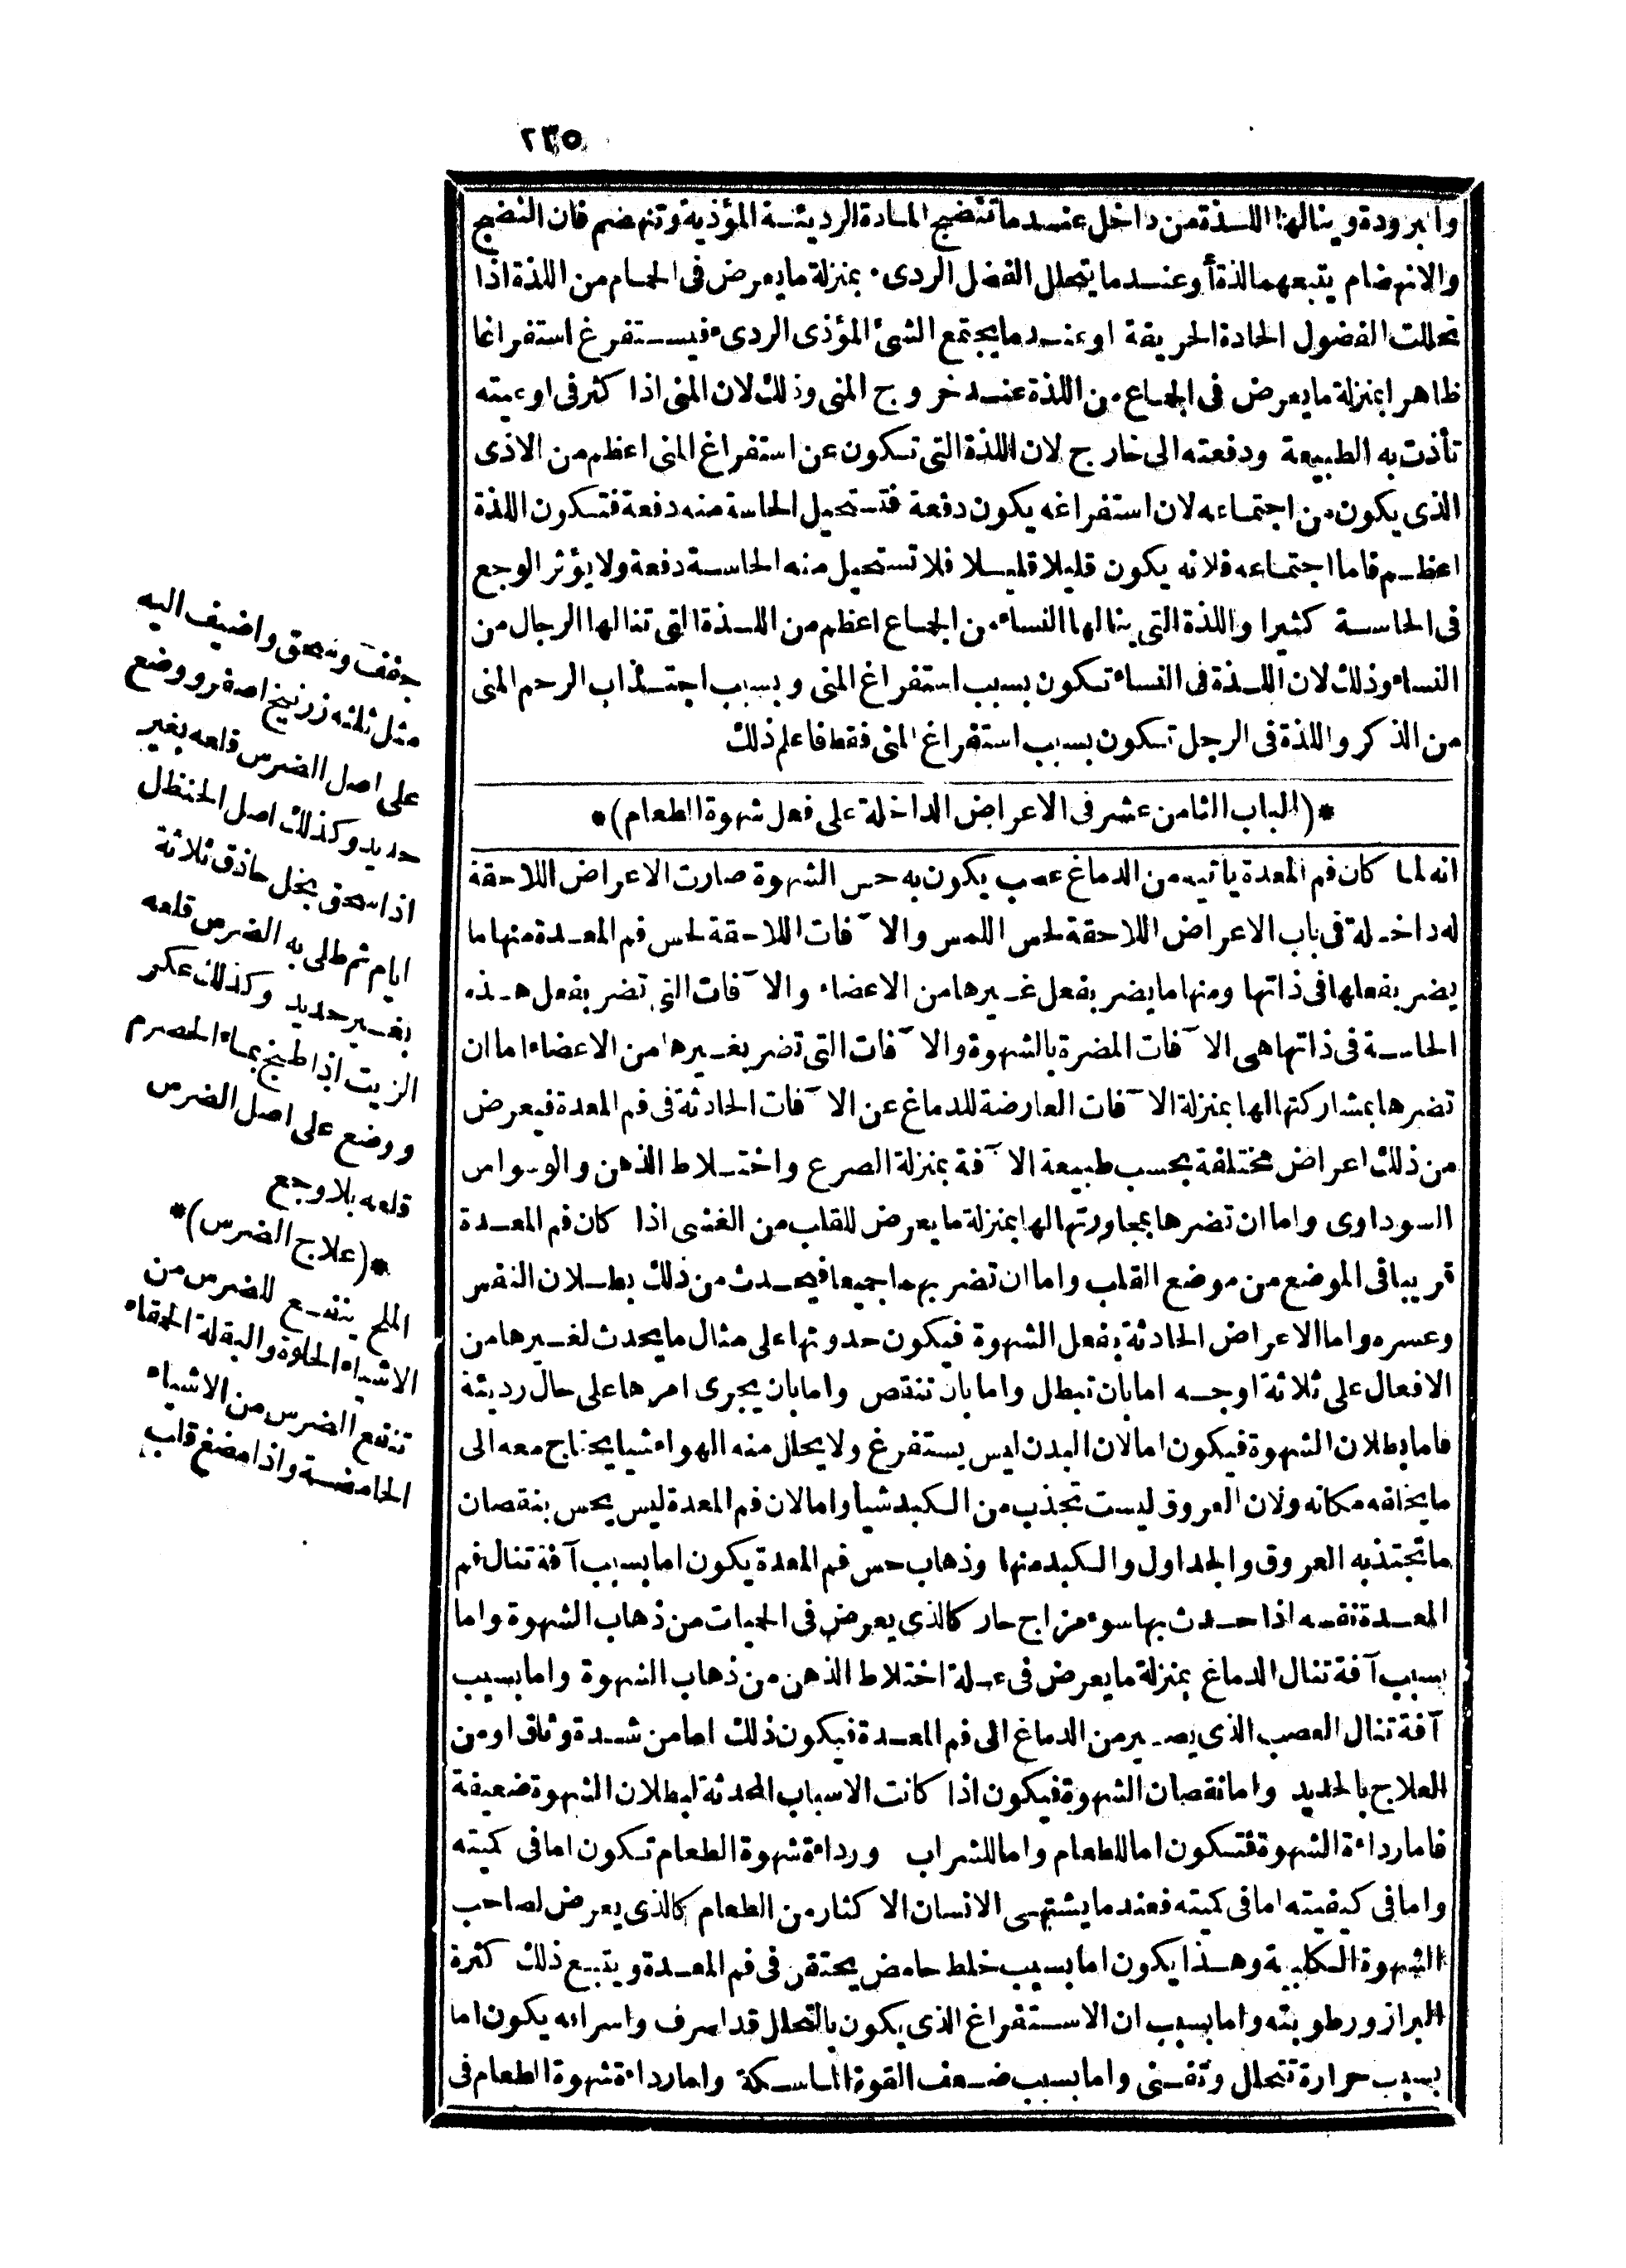 ٢٣٥
والبرودة وينالها اللذة من داخل عندما تنضج المادة الرديئة المؤذية وتنهضم فان النضج
والانهضام يتبعهما لذة أوعندما يتحلل الفضل الردىء بمنزلة ما يعرض فى الحمام من اللذة اذا
تحللت الفضول الحادة الحريفة اوعندما يجتمع الشئ المؤذى الردىء فيستفرغ استفراغا
ظاهرا بمنزلة ما يعرض فى الجماع من اللذة عند خروج المنى وذلك لان المنى اذا كثر فى اوعيته
تأذت به الطبيعة ودفعته الى خارج لان اللذة التى تكون عن استفراغ المنى اعظم من الاذى
الذى يكون من اجتماعه لان استفراغه يكون دفعة فتستحيل الحاسة منه دفعة فتكون اللذة
اعظم فاما اجتماعه فلانه يكون قليلا قليلا فلا تستحيل منه الحاسة دفعة ولا يؤثر الوجع
فى الحاسة كثيرا واللذة التى ينالها النساء من الجماع اعظم من اللذة التى تنالها الرجال من
النساء وذلك لان اللذة فى النساء تكون بسبب استفراغ المنى وبسبب اجتذاب الرحم المنى
من الذكر واللذة فى الرجل تكون بسبب استفراغ المنى فقط فاعلم ذلك
*(الباب الثامن عشر فى الاعراض الداخلة على فعل شهوة الطعام)*
انه لما كان فم المعدة يأتيه من الدماغ عصب يكون به حس الشهوة صارت الاعراض اللاحقة
له داخلة فى باب الاعراض اللاحقة لحس اللمس والآفات اللاحقة لحس فم المعدة منها ما
يضر بفعلها فى ذاتها ومنها ما يضر بفعل غيرها من الاعضاء والآفات التى تضر بفعل هذه
الحاسة فى ذاتها هى الآفات المضرة بالشهوة والآفات التى تضر بغيرها من الاعضاء اما ان
تضرها بمشاركتها لها بمنزلة الآفات العارضة للدماغ عن الآفات الحادثة فى فم المعدة فيعرض
من ذلك اعراض مختلفة بحسب طبيعة الآفة بمنزلة الصرع واختلاط الذهن والوسواس
السوداوى واما ان تضرها بمجاورتها لها بمنزلة ما يعرض للقلب من الغشى اذا كان فم المعدة
قريبا فى الموضع من موضع القلب واما ان تضر بهما جميعا فيحدث من ذلك بطلان النفس
وعسره واما الاعراض الحادثة بفعل الشهوة فيكون حدوثها على مثال ما يحدث لغيرها من
الافعال على ثلاثة اوجه اما بان تبطل واما بان تنقص واما بان يجرى امرها على حال رديئة
فاما بطلان الشهوة فيكون اما لان البدن ليس يستفرغ ولا يحلل منه الهواء شيا يحتاج معه الى
ما يخلفه مكانه ولان العروق ليست تجذب من الكبد شيا واما لان فم المعدة ليس يحس بنقصان
ما تجتذبه العروق والجداول والكبد منها وذهاب حس فم المعدة يكون اما بسبب آفة تنال فم
المعدة نفسه اذا حدث بها سوء مزاج حار كالذى يعرض فى الحميات من ذهاب الشهوة واما
بسبب آفة تنال الدماغ بمنزلة ما يعرض فى علة اختلاط الذهن من ذهاب الشهوة واما بسبب
آفة تنال العصب الذى يصير من الدماغ الى فم المعدة فيكون ذلك اما من شدة وثاق او من
العلاج بالحديد واما نقصان الشهوة فيكون اذا كانت الاسباب المحدثة لبطلان الشهوة ضعيفة
فاما رداءة الشهوة فتكون اما للطعام واما للشراب ورداءة شهوة الطعام تكون اما فى كميته
واما فى كيفيته اما فى كميته فعندما يشتهى الانسان الاكثار من الطعام كالذى يعرض لصاحب
الشهوة الكلبية وهذا يكون اما بسبب خلط حامض يحتقن فى فم المعدة ويتبع ذلك كثرة
البراز ورطوبته واما بسبب ان الاستفراغ الذى يكون بالتحلل قد اسرف واسرافه يكون اما
بسبب حرارة تتحلل وتفنى واما بسبب ضعف القوة الماسكة واما رداءة شهوة الطعام فى
جفف وسحق واضيف اليه
مثل ثلثه زرنيخ اصفر ووضع
على اصل الضرس قلعه بغير
حديد وكذلك اصل الحنظل
اذا سحق بخل حاذق ثلاثة
ايام ثم طلى به الضرس قلعه
بغير حديد وكذلك عكر
الزيت اذا طبخ بماء الحصرم
ووضع على اصل الضرس
قلعه بلا وجع
*(علاج الضرس)*
الملح ينفع للضرس من
الاشياء الحلوة والبقلة الحمقاء
تنفع الضرس من الاشياء
الحامضة واذا مضغ قلب